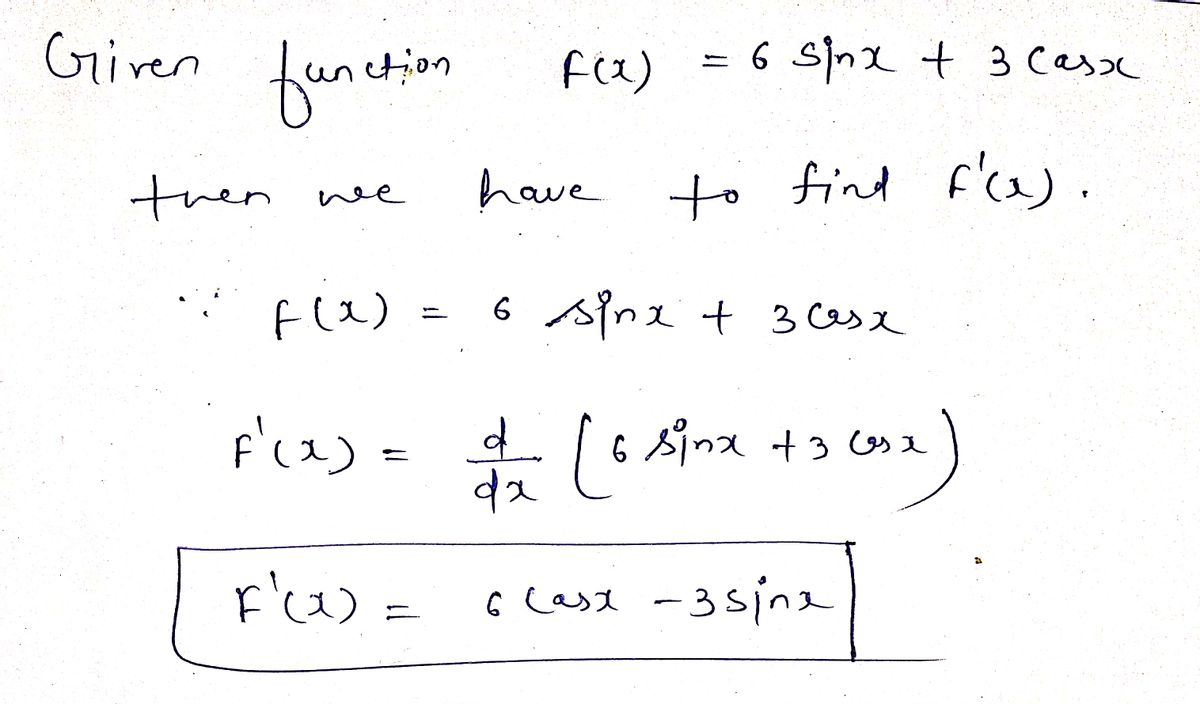 Given function f(x) = 6 sinx + 3 cosx
then we have to find f'(x).
∵ f(x) = 6 sinx + 3 cosx
F'(x) = d/dx (6 sinx + 3 cosx)
F'(x) = 6 cosx - 3 sinx